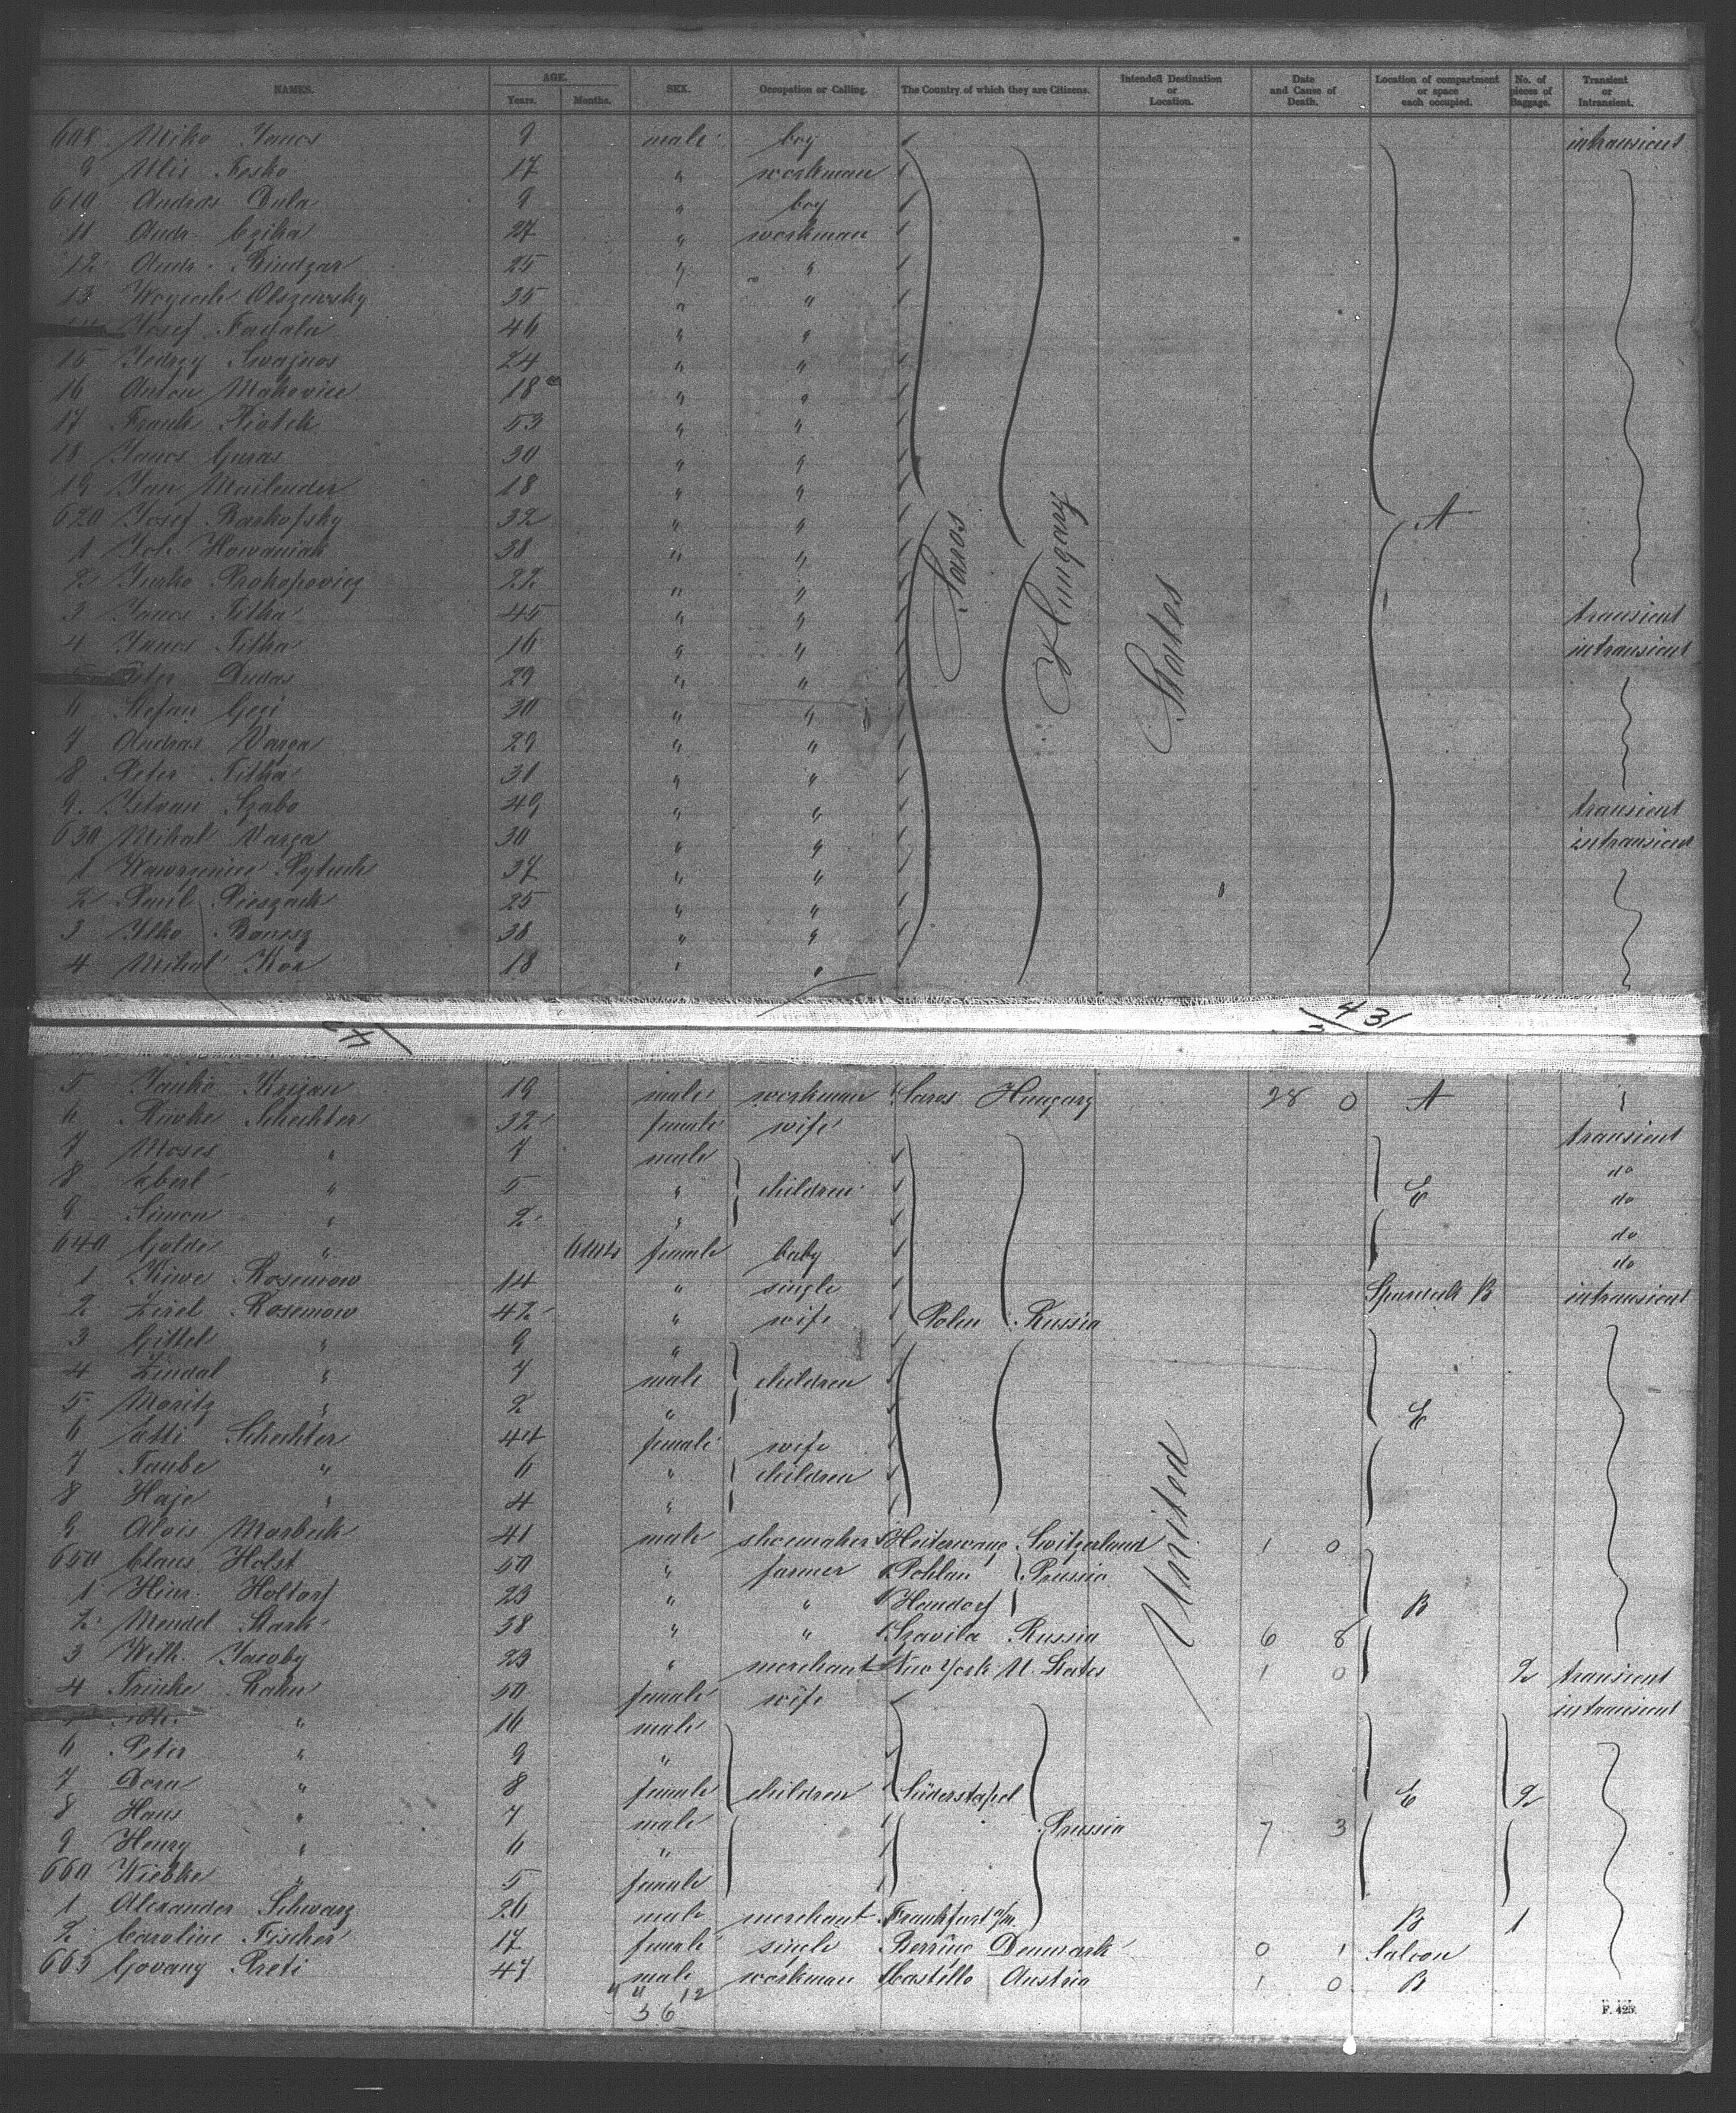 NAMES. AGE. Years. Months. SEX. Occupation or Calling. The Country of which they are Citizens. Intended Destination or Location. Date and Cause of Death. Location of compartment or space each occupied. No. of pieces of Baggage. Transient or Intransient.
608 Miko Janos 9 male boy intransient
9 Fesko 17 " workman
610 Andras Dula 9 " boy
11 Andr. Czika 27 " workman
12 Andr. Bindzar 25 " "
13 Woyciech Olszewsky 35 " "
Josef 46 " "
15 Jedrzy 24 " "
16 Anton Makovice 18 " "
17 Frank Piatek 53 " "
18 Janos Guras 30 " "
19 Jan Mailender 18 " "
620 Josef Barkofsky 32 " " A
1 Joh. Howaniak 38 " " Saros Hungary
2 Jurko Prokopovicz 22 " " States
3 Janos Titha 45 " " transient
4 Janos Titha 16 " " intransient
Peter Dudas 29 " "
6 Stefan Gegi 30 " "
7 Andras Varga 29 " "
8 Peter Titha 31 " "
9 Istvan Szabo 49 " " transient
630 Mihal Varga 30 " " intransient
1 Wawrzeniec Pytuch 37 " "
2 Paul Pieszack 25 " "
3 Ilko Banesz 38 " "
4 Mihal Kon 18 " "
431
5 Janko Krizan 19 male workman Saros Hungary 28 0 A
6 Riwke Schechter 32 female wife transient
7 Moses " 7 male do
8 Eberl " 5 " children E do
9 Simon " 2 " do
640 Golde " 6 female baby do
1 Riwe Rosenow 14 " single B intransient
2 Zirel Rosenow 42 " wife Polen Russia
3 Gittel " 9 "
4 Zindal " 7 male children
5 Moritz " 2 " E
6 Etti Schechter 44 female wife
7 Taube " 6 " children
8 Haje " 4 " United
9 Alois Marbeck 41 male shoemaker Switzerland 1 0
650 Claus Holst 50 " farmer Pohlan Prussia
1 Hinr. Holtorf 23 " " Hamdorf B
2 Mendel Stark 38 " " Szavila Russia 6 8
3 Wilh. Jacoby 23 " merchant New York U. States 1 0 2 transient
4 Trinke Rahn 50 female wife intransient
" 16 male
6 Peter " 9 "
7 Dora " 8 female children Süderstapel E 2
8 Hans " 7 male Prussia 7 3
9 Henry " 6 "
660 Wiebke " 5 female
1 Alexander Schwarz 26 male merchant Frankfurt a/m. B 1
2 Caroline Fischer 17 female single Denmark 0 1 Saloon
663 Govany Preti 47 male workman Castello Austria 1 0 B
12
56
F. 425.